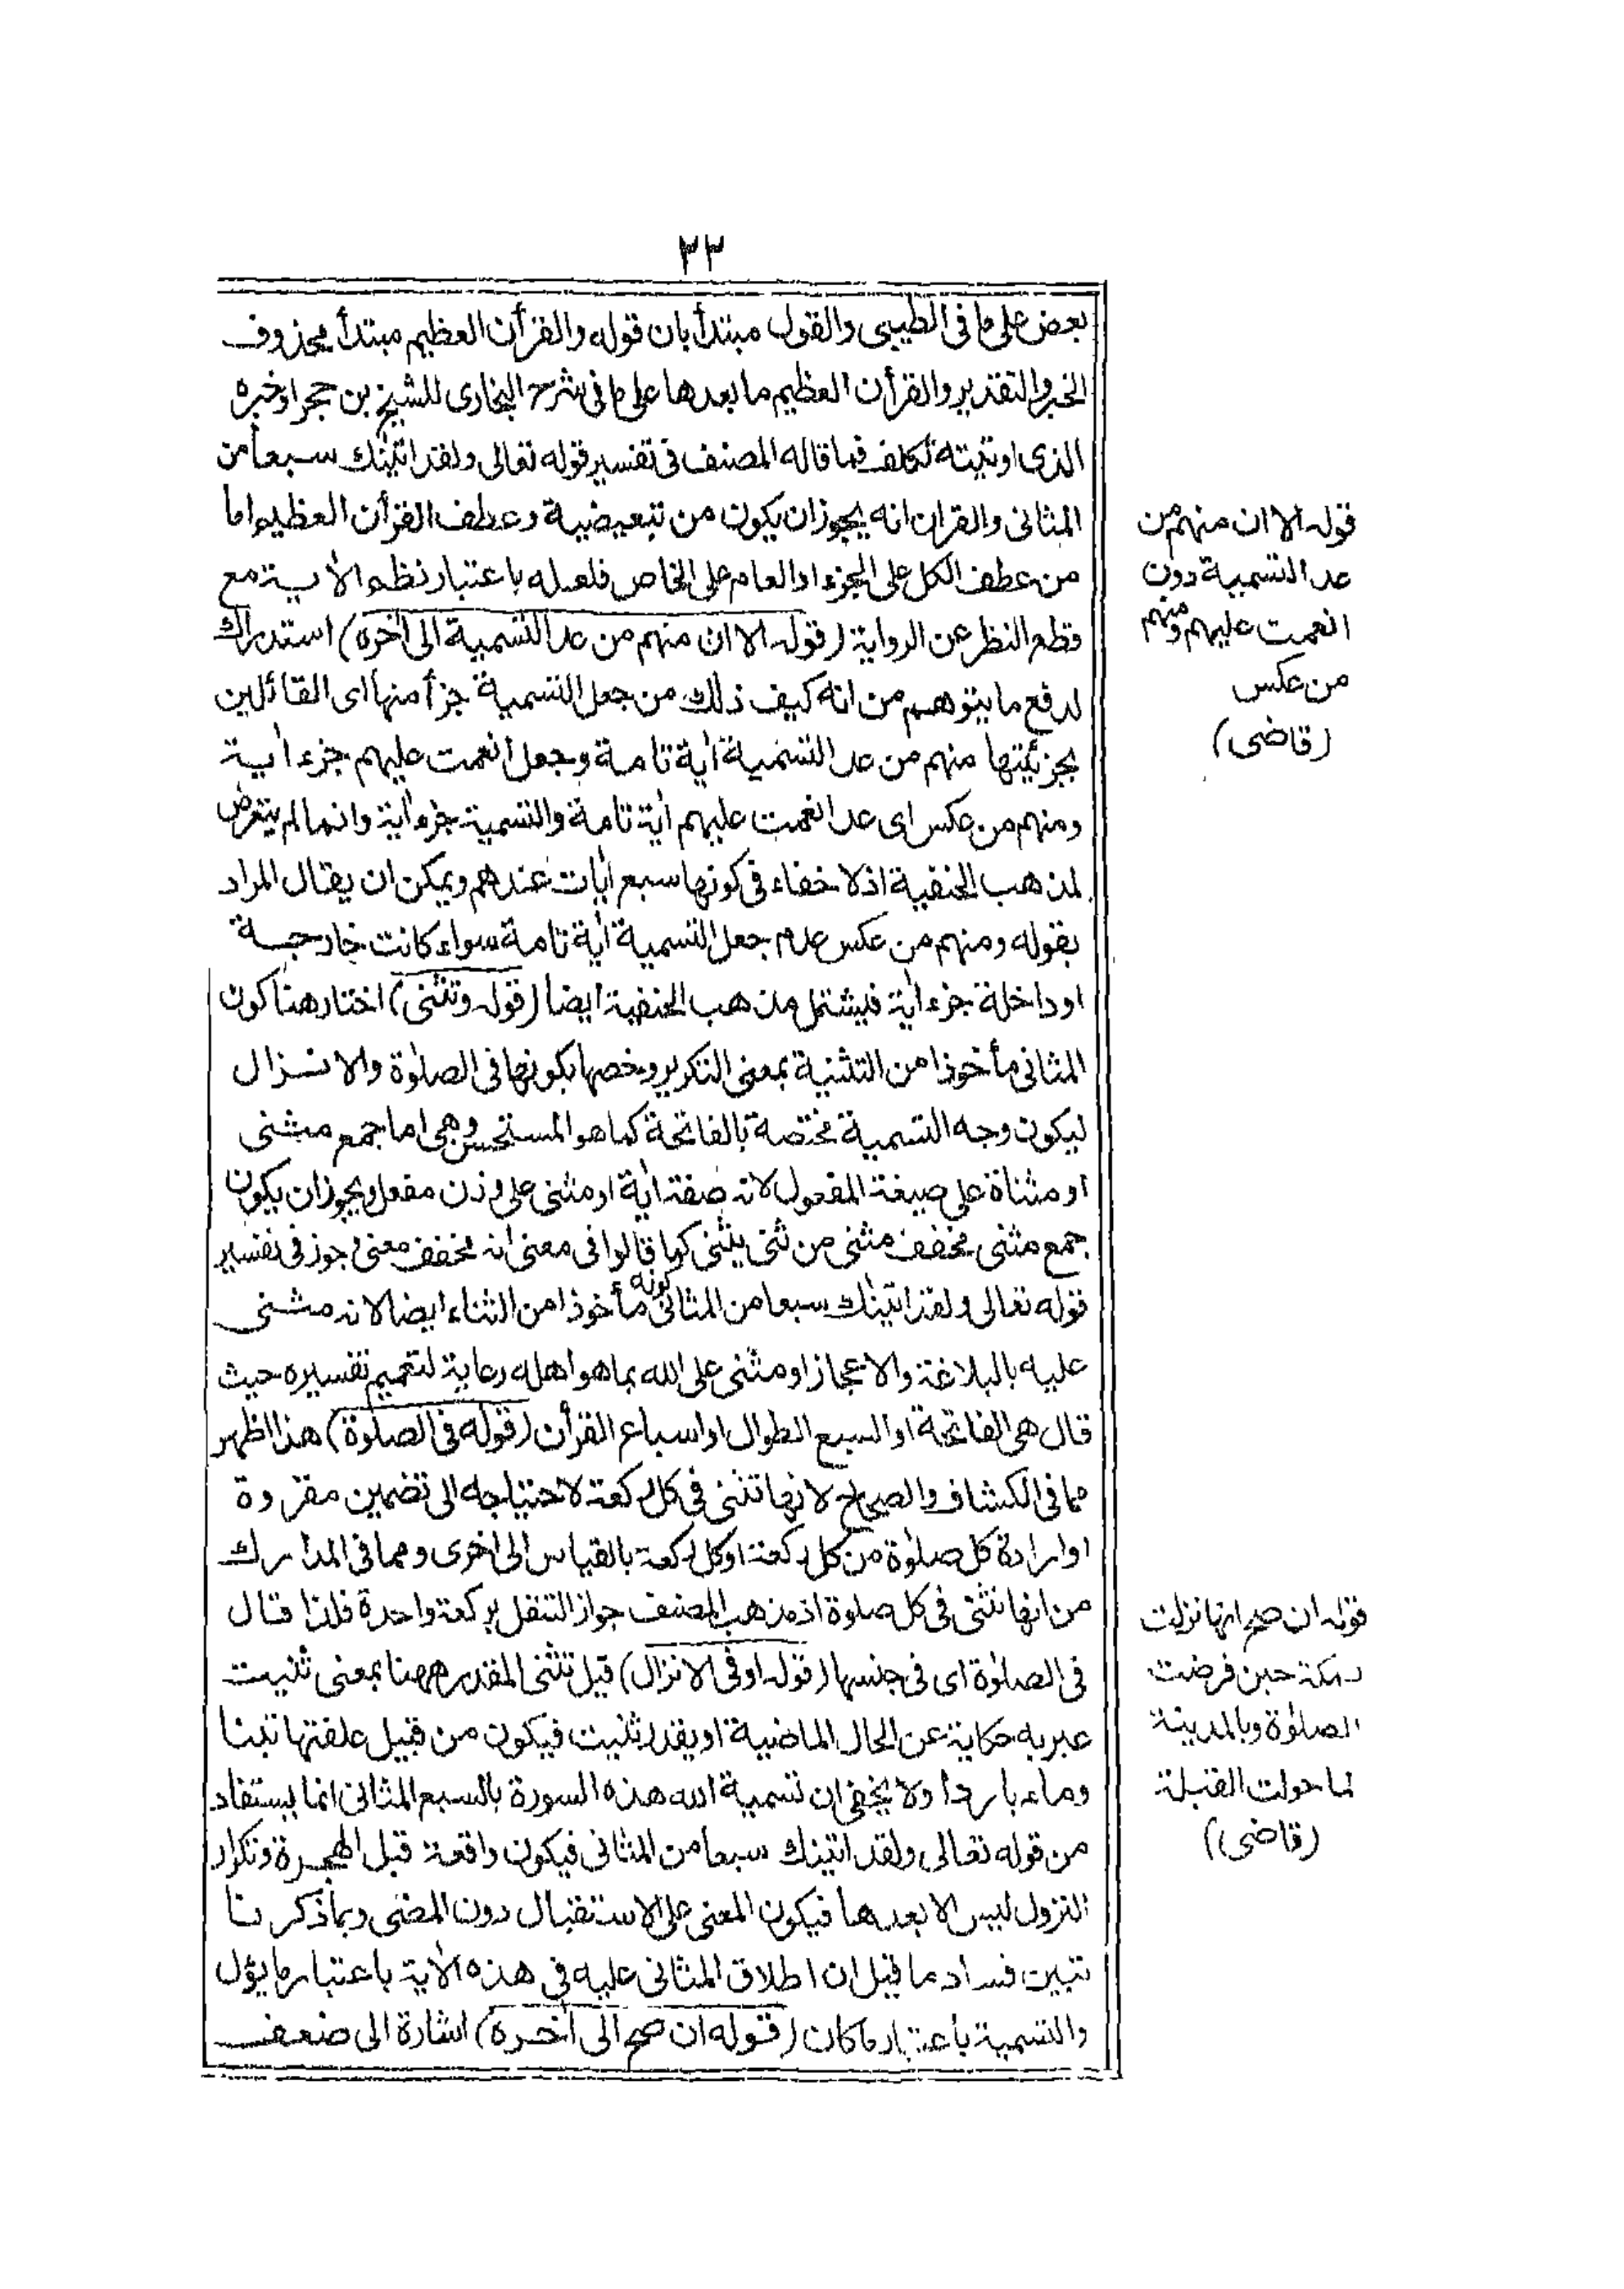 ٣٣
بعض على ما فى الطيبى والقول مبتدأ بان قوله والقرأن العظيم مبتدأ محذوف
الخبر والتقدير والقرأن العظيم ما بعدها على ما فى شرح البخارى للشيخ بن حجر او خبره
الذى اوتيته تكلف فما قاله المصنف فى تفسير قوله تعالى ولقد اتيناك سبعا من
المثانى والقران انه يجوز ان يكون من تبعيضية وعطف القرأن العظيم اما
من عطف الكل على الجزء او العام على الخاص فلعله باعتبار نظم الأية مع
قطع النظر عن الرواية (قوله الا ان منهم من عد التسمية الى أخره) استدراك
لدفع ما يتوهم من انه كيف ذلك من جعل التسمية جزأ منها اى القائلين
بجزئيتها منهم من عد التسمية أية تامة وجعل انعمت عليهم جزء أية
ومنهم من عكس اى عد انعمت عليهم أية تامة والتسمية جزء أية وانما لم يتعرض
لمذهب الحنفية اذ لا خفاء فى كونها سبع أيات عندهم ويمكن ان يقال المراد
بقوله ومنهم من عكس عدم جعل التسمية أية تامة سواء كانت خارجة
او داخلة جزء أية فيشتمل مذهب الحنفية ايضا (قوله وتثنى) اختار هنا كون
المثانى مأخوذا من التثنية بمعنى التكرير وخصها بكونها فى الصلوٰة والانزال
ليكون وجه التسمية مختصة بالفاتحة كما هو المستحسن وهى اما جمع مثنى
او مثناة على صيغة المفعول لانه صفة أية او مثنى على وزن مفعل ويجوز ان يكون
جمع مثنى مخفف مثنى من ثنى يثنى كما قالوا فى معنى انه مخفف معنى وجوز فى تفسير
قوله تعالى ولقد اتيناك سبعا من المثانى كونه مأخوذا من الثناء ايضا لانه مثنى
عليه بالبلاغة والاعجاز او مثنى على الله بما هو اهله رعاية لتعميم تفسيره حيث
قال هى الفاتحة او السبع الطوال او اسباع القرأن (قوله فى الصلوٰة) هذا اظهر
مما فى الكشاف والصحاح لانها تثنى فى كل ركعة لاحتياجه الى تضمين مقروة
او ارادة كل صلوٰة من كل ركعة او كل ركعة بالقياس الى اخرى ومما فى المدارك
من انها تثنى فى كل صلوة اذ مذهب المصنف جواز التنفل بركعة واحدة فلذا قال
فى الصلوٰة اى فى جنسها (قوله او فى الانزال) قيل تثنى المقدر ههنا بمعنى ثنيت
عبر به حكاية عن الحال الماضية او يقدر ثنيت فيكون من قبيل علفتها تبنا
وماء باردا ولا يخفى ان تسمية الله هذه السورة بالسبع المثانى انما يستفاد
من قوله تعالى ولقد اتيناك سبعا من المثانى فيكون واقعة قبل الهجرة وتكرار
النزول ليس الا بعدها فيكون المعنى على الاستقبال دون المضى وبما ذكرنا
تبين فساد ما قيل ان اطلاق المثانى عليه فى هذه الأية باعتبار ما يؤل
والتسمية باعتبار ما كان (قوله ان صح الى أخره) اشارة الى ضعف
قوله الا ان منهم من
عد التسمية دون
انعمت عليهم ومنهم
من عكس
(قاضى)
قوله ان صح انها نزلت
بمكة حين فرضت
الصلوٰة وبالمدينة
لما حولت القبلة
(قاضى)